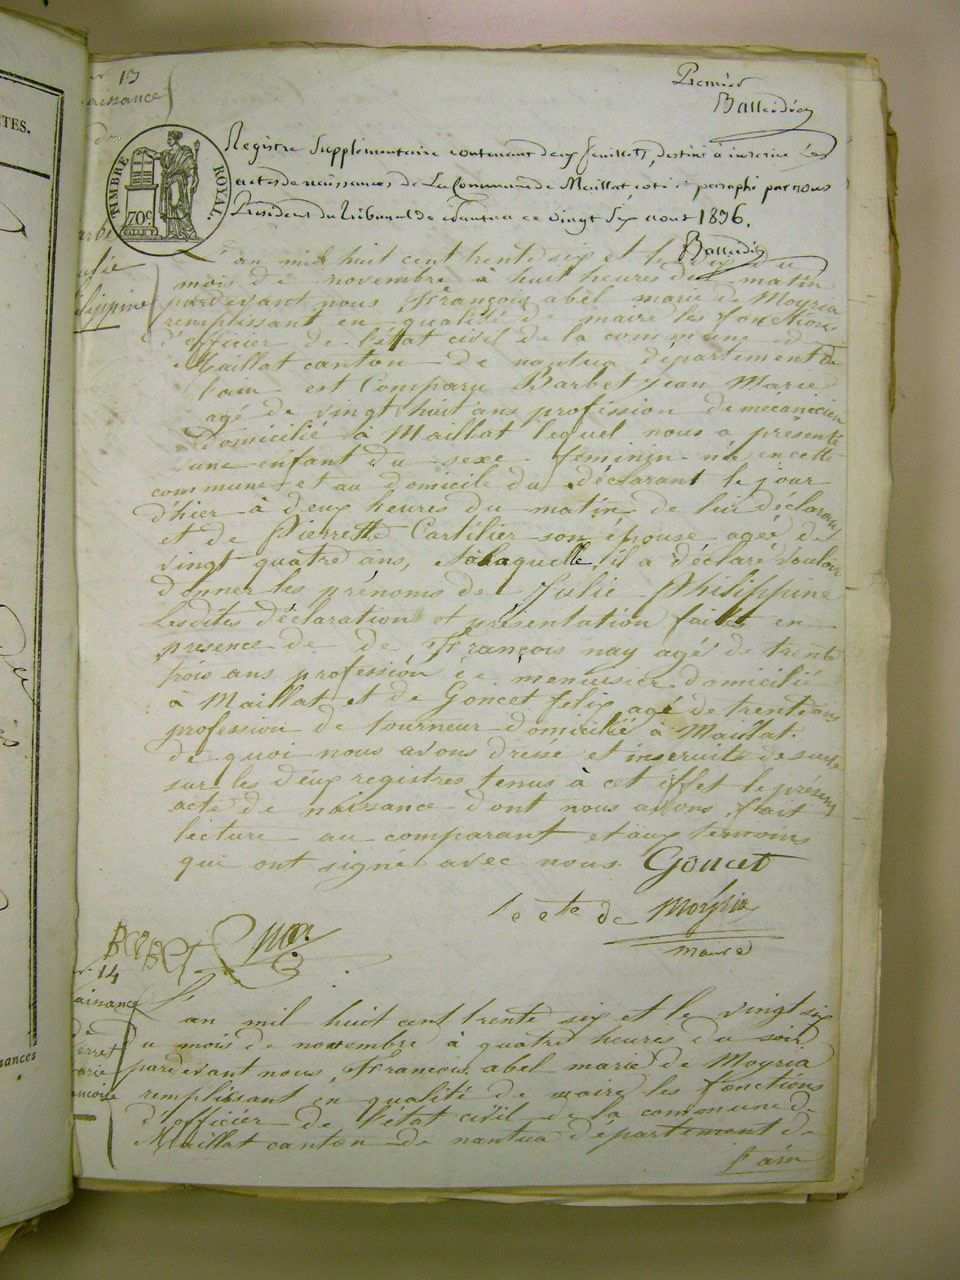 TES.
Premier
Balleidier
n. 13
naissance
de
TIMBRE ROYAL.
70c.
Registre Supplémentaire contenant deux feuillets, destiné à inscrire les
actes de naissances de La Commune de Maillat coté et paraphé par nous
Président du Tribunal de Nantua ce vingt Six aout 1836.
Balleidier
L'an mil huit cent trente six et le
mois de novembre à huit heures du matin
pardevant nous François abel marie de Moyria
remplissant en qualité de maire les fonctions
d'officier de l'état civil de la commune de
Maillat canton de nantua departement de
l'ain est Comparu Barbet Jean Marie
agé de vingt huit ans profession de mécanicien
Domicilié à Maillat lequel nous a présenté
une enfant du sexe feminin né en cette
commune et au domicile du déclarant le jour
d'hier à deux heures du matin de lui déclarant
et de Pierrette Cartilier son épouse agée de
vingt quatre ans, à laquelle il a déclaré vouloir
donner les prénoms de Julie Philippine
Lesdites déclaration et présentation faites en
presence de de François nay agé de trente
trois ans profession de menuisier domicilié
à Maillat et de Goncet felix agé de trente ans
profession de tourneur domicilié à Maillat.
de quoi nous avons dressé et inscrit de suite
sur les deux registres tenus à cet effet le présent
acte de naissance dont nous avons fait
lecture au comparant et aux témoins
qui ont signé avec nous Goncet
le cte de Moyria
maire
Barbet nay
n. 14
naissance
de
L'an mil huit cent trente six et le vingt six
du mois de novembre à quatre heures du soir
pardevant nous, François abel marie de Moyria
remplissant en qualité de maire les fonctions
d'officier de l'état civil de la commune de
Maillat canton de nantua département de
l'ain